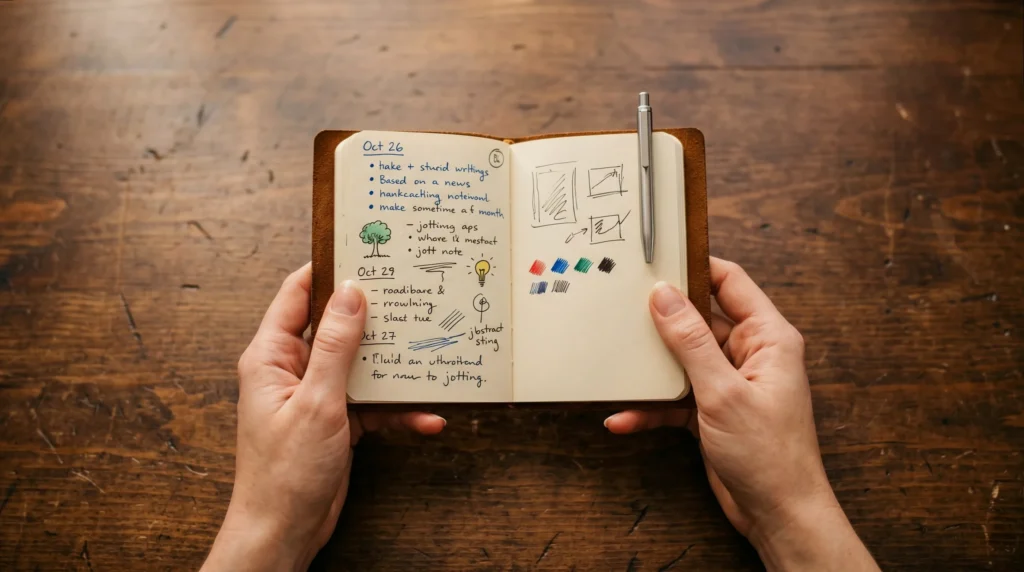 Oct 26
• hake + sturid writings
• Based on a news
• hankcaching notewonl
• make sometime af month
– jotting aps
• whore I's mestoct
• jott note
Oct 29
– roadibare &
– rrowlning
– slact tue
jbstract
sting
Oct 27
• Iluid an uthrotiond
for now to jotting.